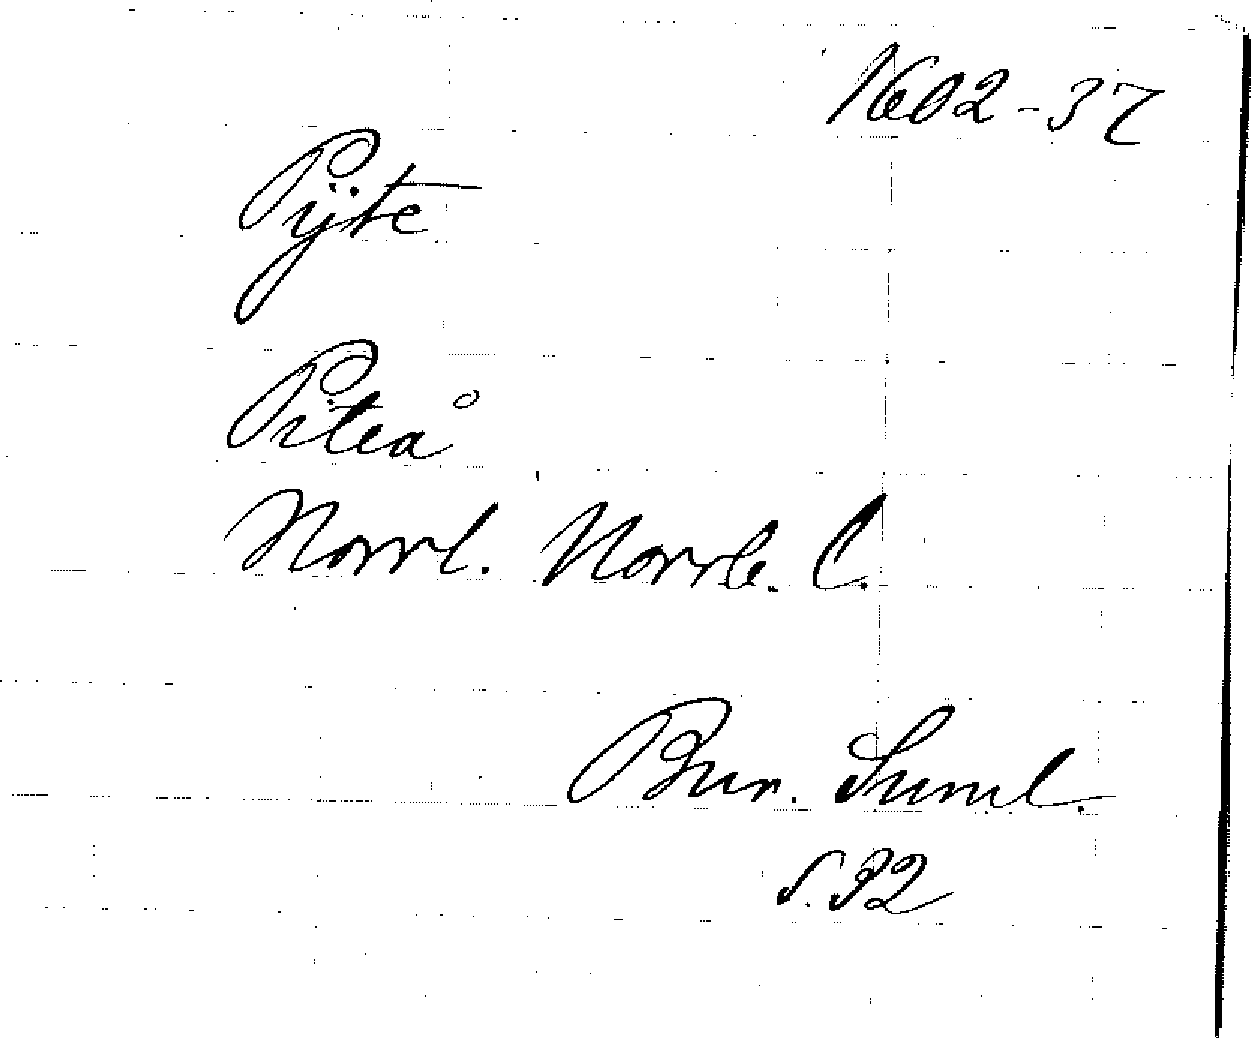 1602-37
Pÿte
Piteå
Norrl. Norrb. C.
Bur. Suml.
s. 32